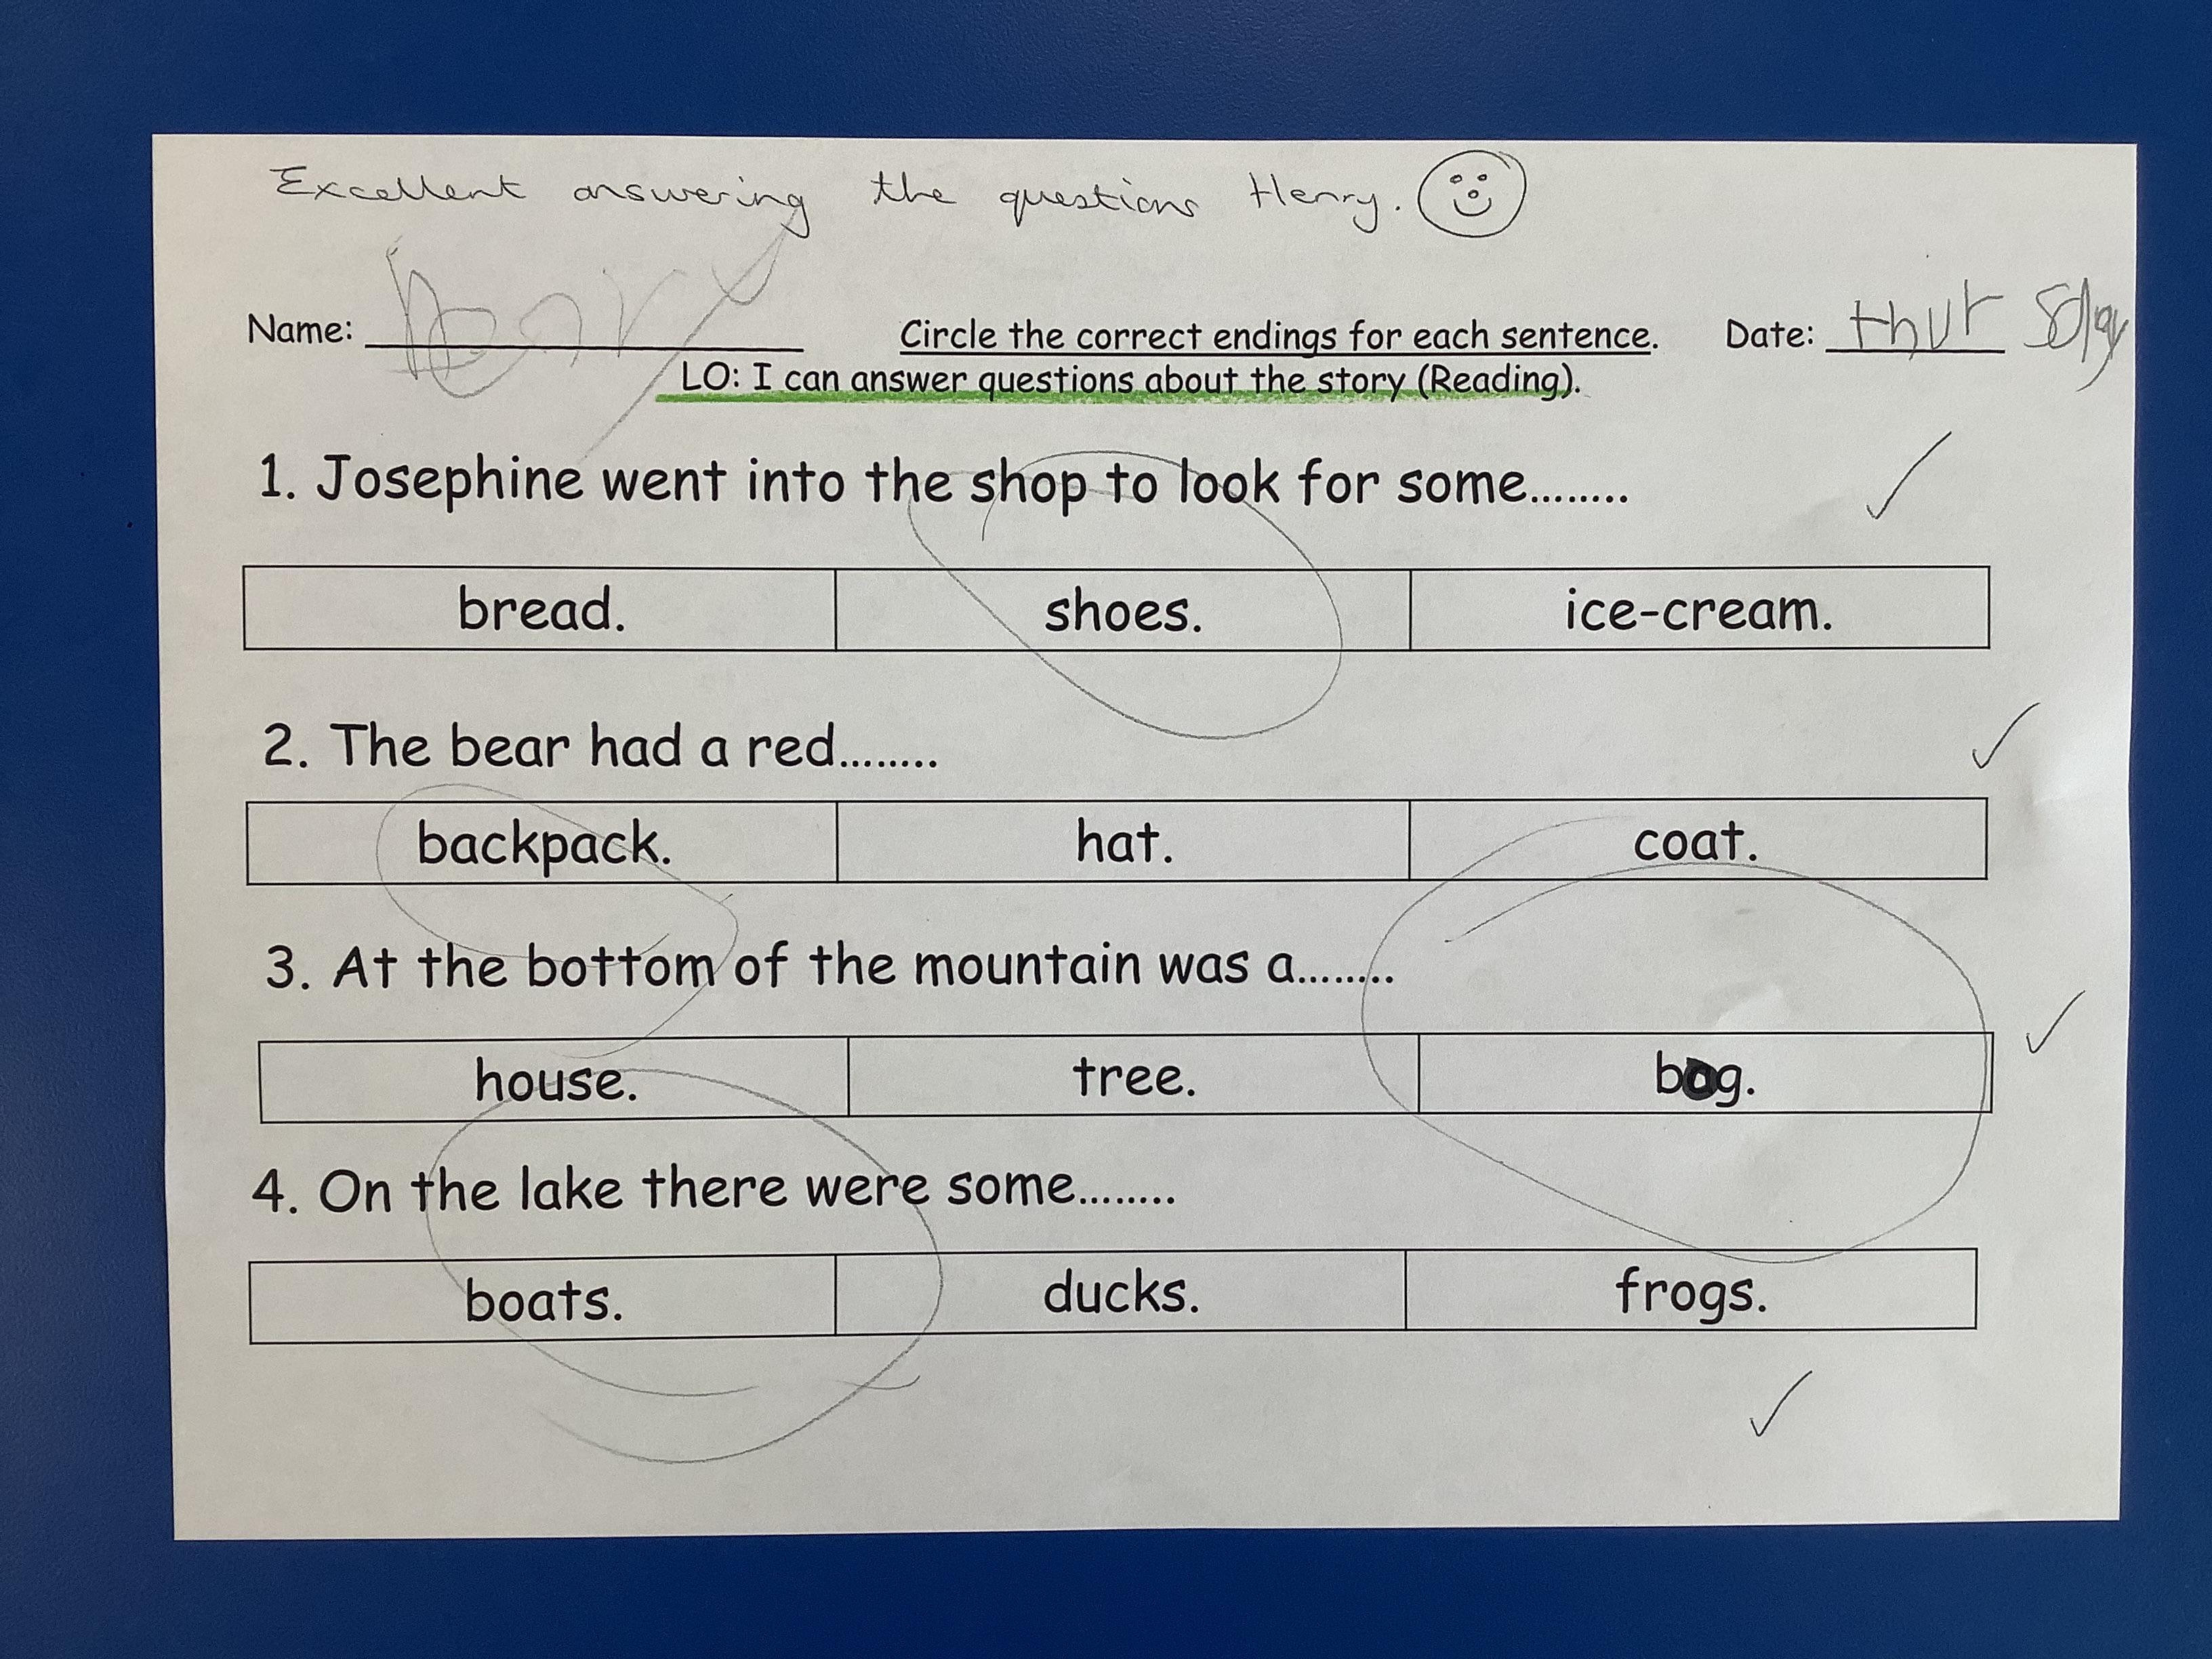 Excellent answering the questions Henry.
Name: henry Circle the correct endings for each sentence. Date: thursday
LO: I can answer questions about the story (Reading).
1. Josephine went into the shop to look for some........
bread. shoes. ice-cream.
2. The bear had a red........
backpack. hat. coat.
3. At the bottom of the mountain was a........
house. tree. bag.
4. On the lake there were some........
boats. ducks. frogs.